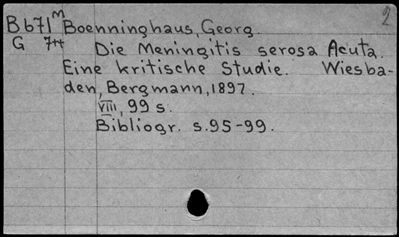 2
B671M Boenninghaus, Georg.
G 7tt Die Meningitis serosa Acuta.
Eine kritische Studie. Wiesba-
den, Bergmann, 1897.
VIII, 99 s.
Bibliogr. s.95-99.